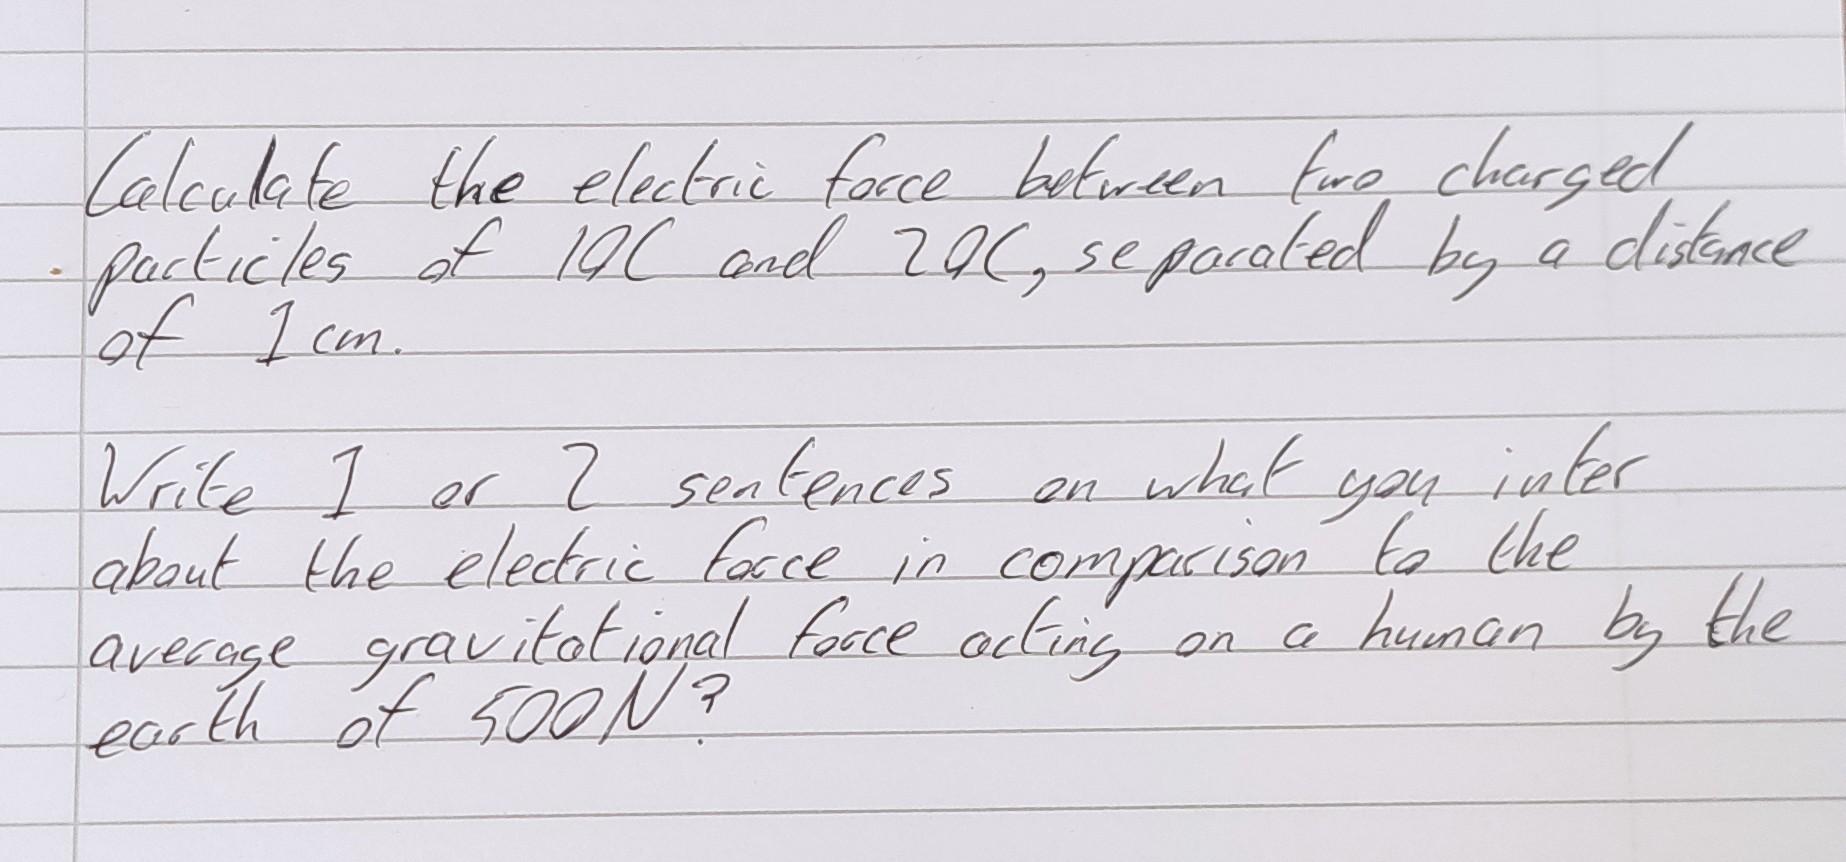 Calculate the electric force between two charged
particles of 10C and 20C, separated by a distance
of 1 cm.
Write 1 or 2 sentences on what you infer
about the electric force in comparison to the
average gravitational force acting on a human by the
earth of 500N?